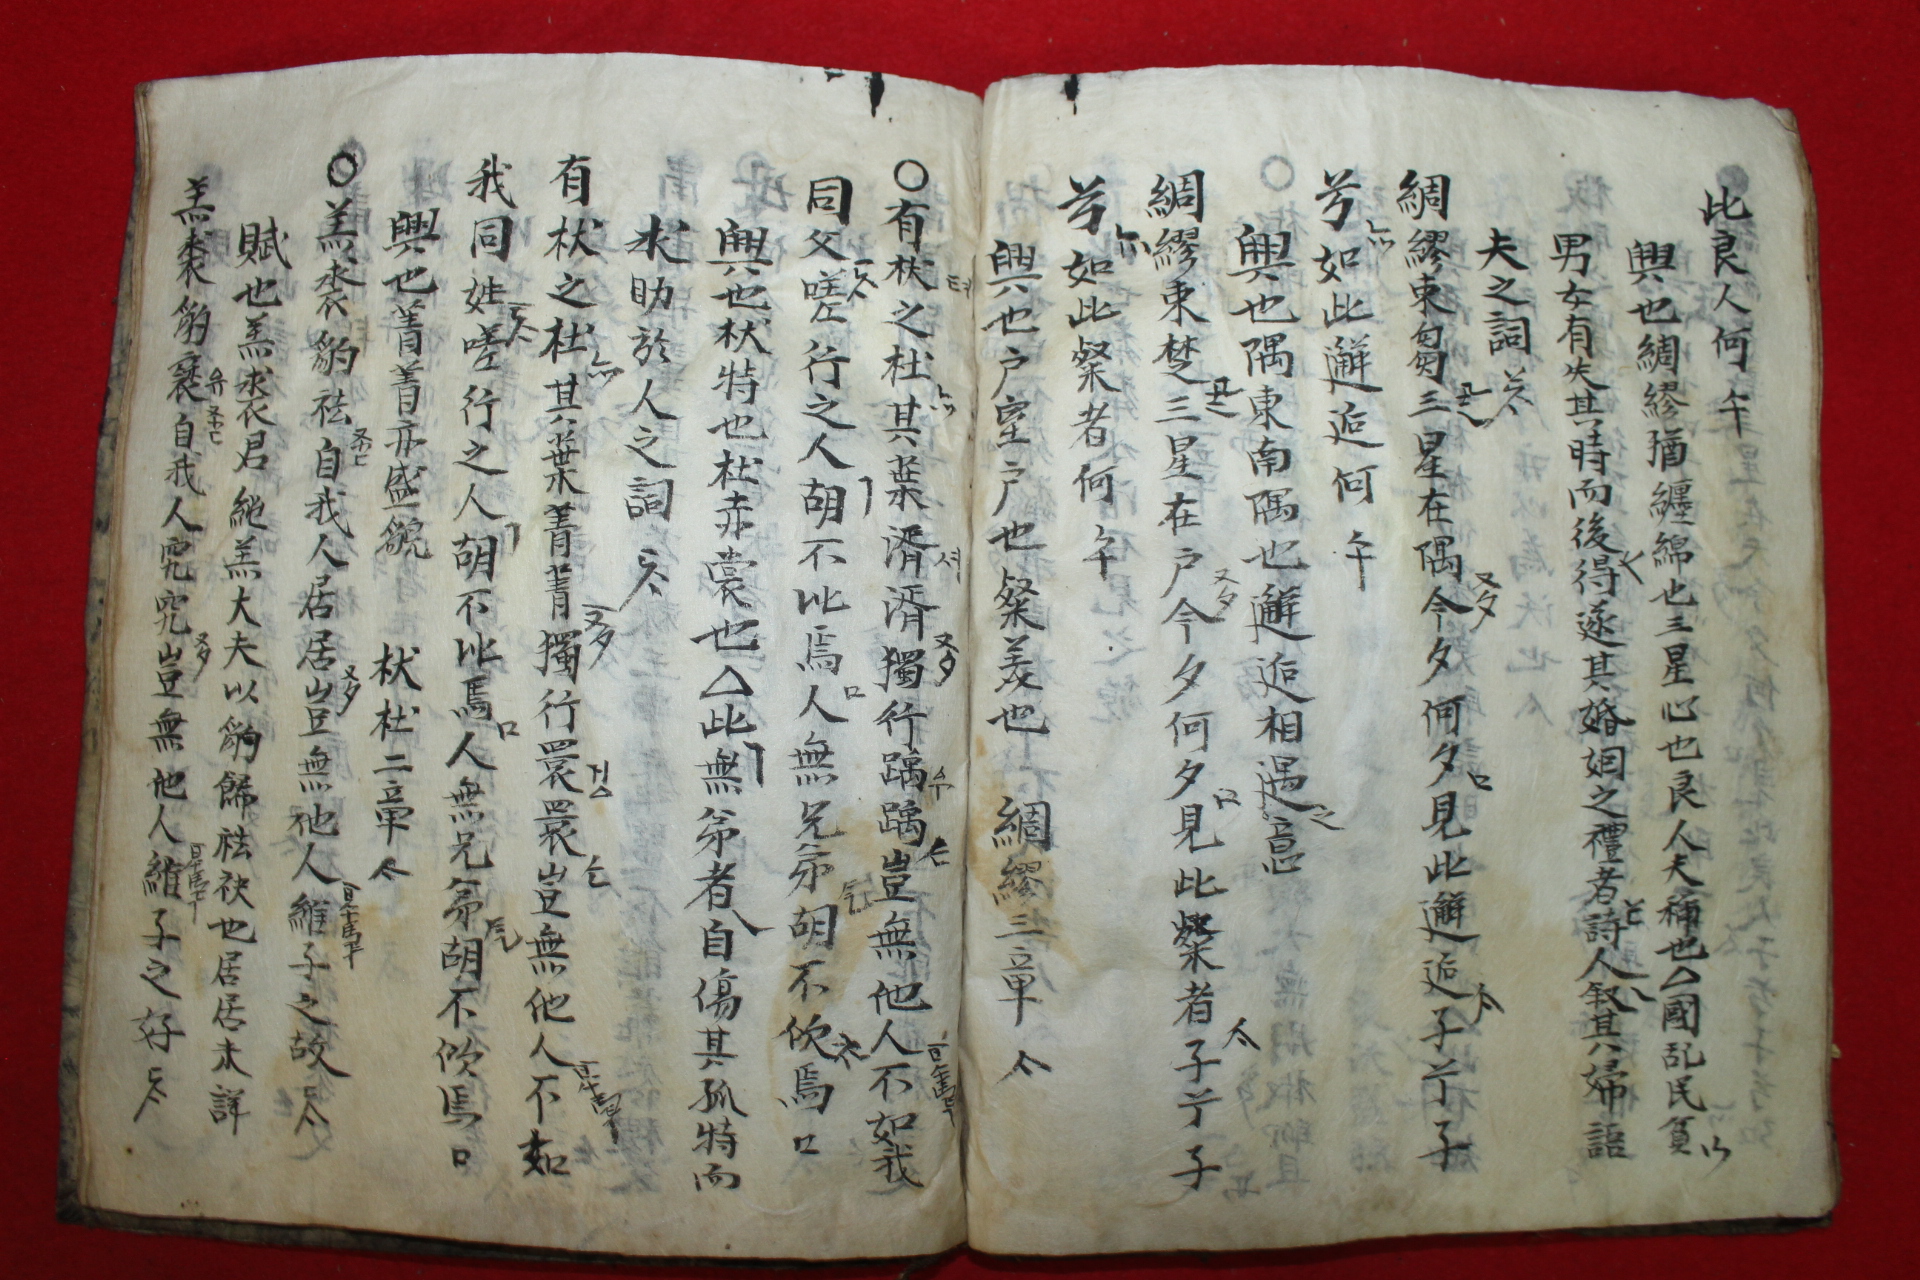 此良人何
興也綢繆猶纏綿也三星心也良人夫稱也△國乱民貧
男女有失其時而後得遂其婚姻之禮者詩人叙其婦語
夫之詞
綢繆束芻三星在隅今夕何夕見此邂逅子兮子
兮如此邂逅何
興也隅東南隅也邂逅相遇意
綢繆束楚三星在户今夕何夕見此粲者子兮子
兮如此粲者何
興也户室户也粲美也 綢繆三章
○有杕之杜其葉湑湑獨行踽踽豈無他人不如我
同父嗟行之人胡不比焉人無兄弟胡不佽焉
興也杕特也杜赤棠也△此無弟者自傷其孤特而
求助於人之詞
有杕之杜其葉菁菁獨行睘睘豈無他人不如
我同姓嗟行之人胡不比焉人無兄弟胡不佽焉
興也菁菁亦盛貌 杕杜二章
○羔裘豹袪自我人居居豈無他人維子之故
賦也羔裘君純羔大夫以豹飾袪袂也居居未詳
羔裘豹褎自我人究究豈無他人維子之好